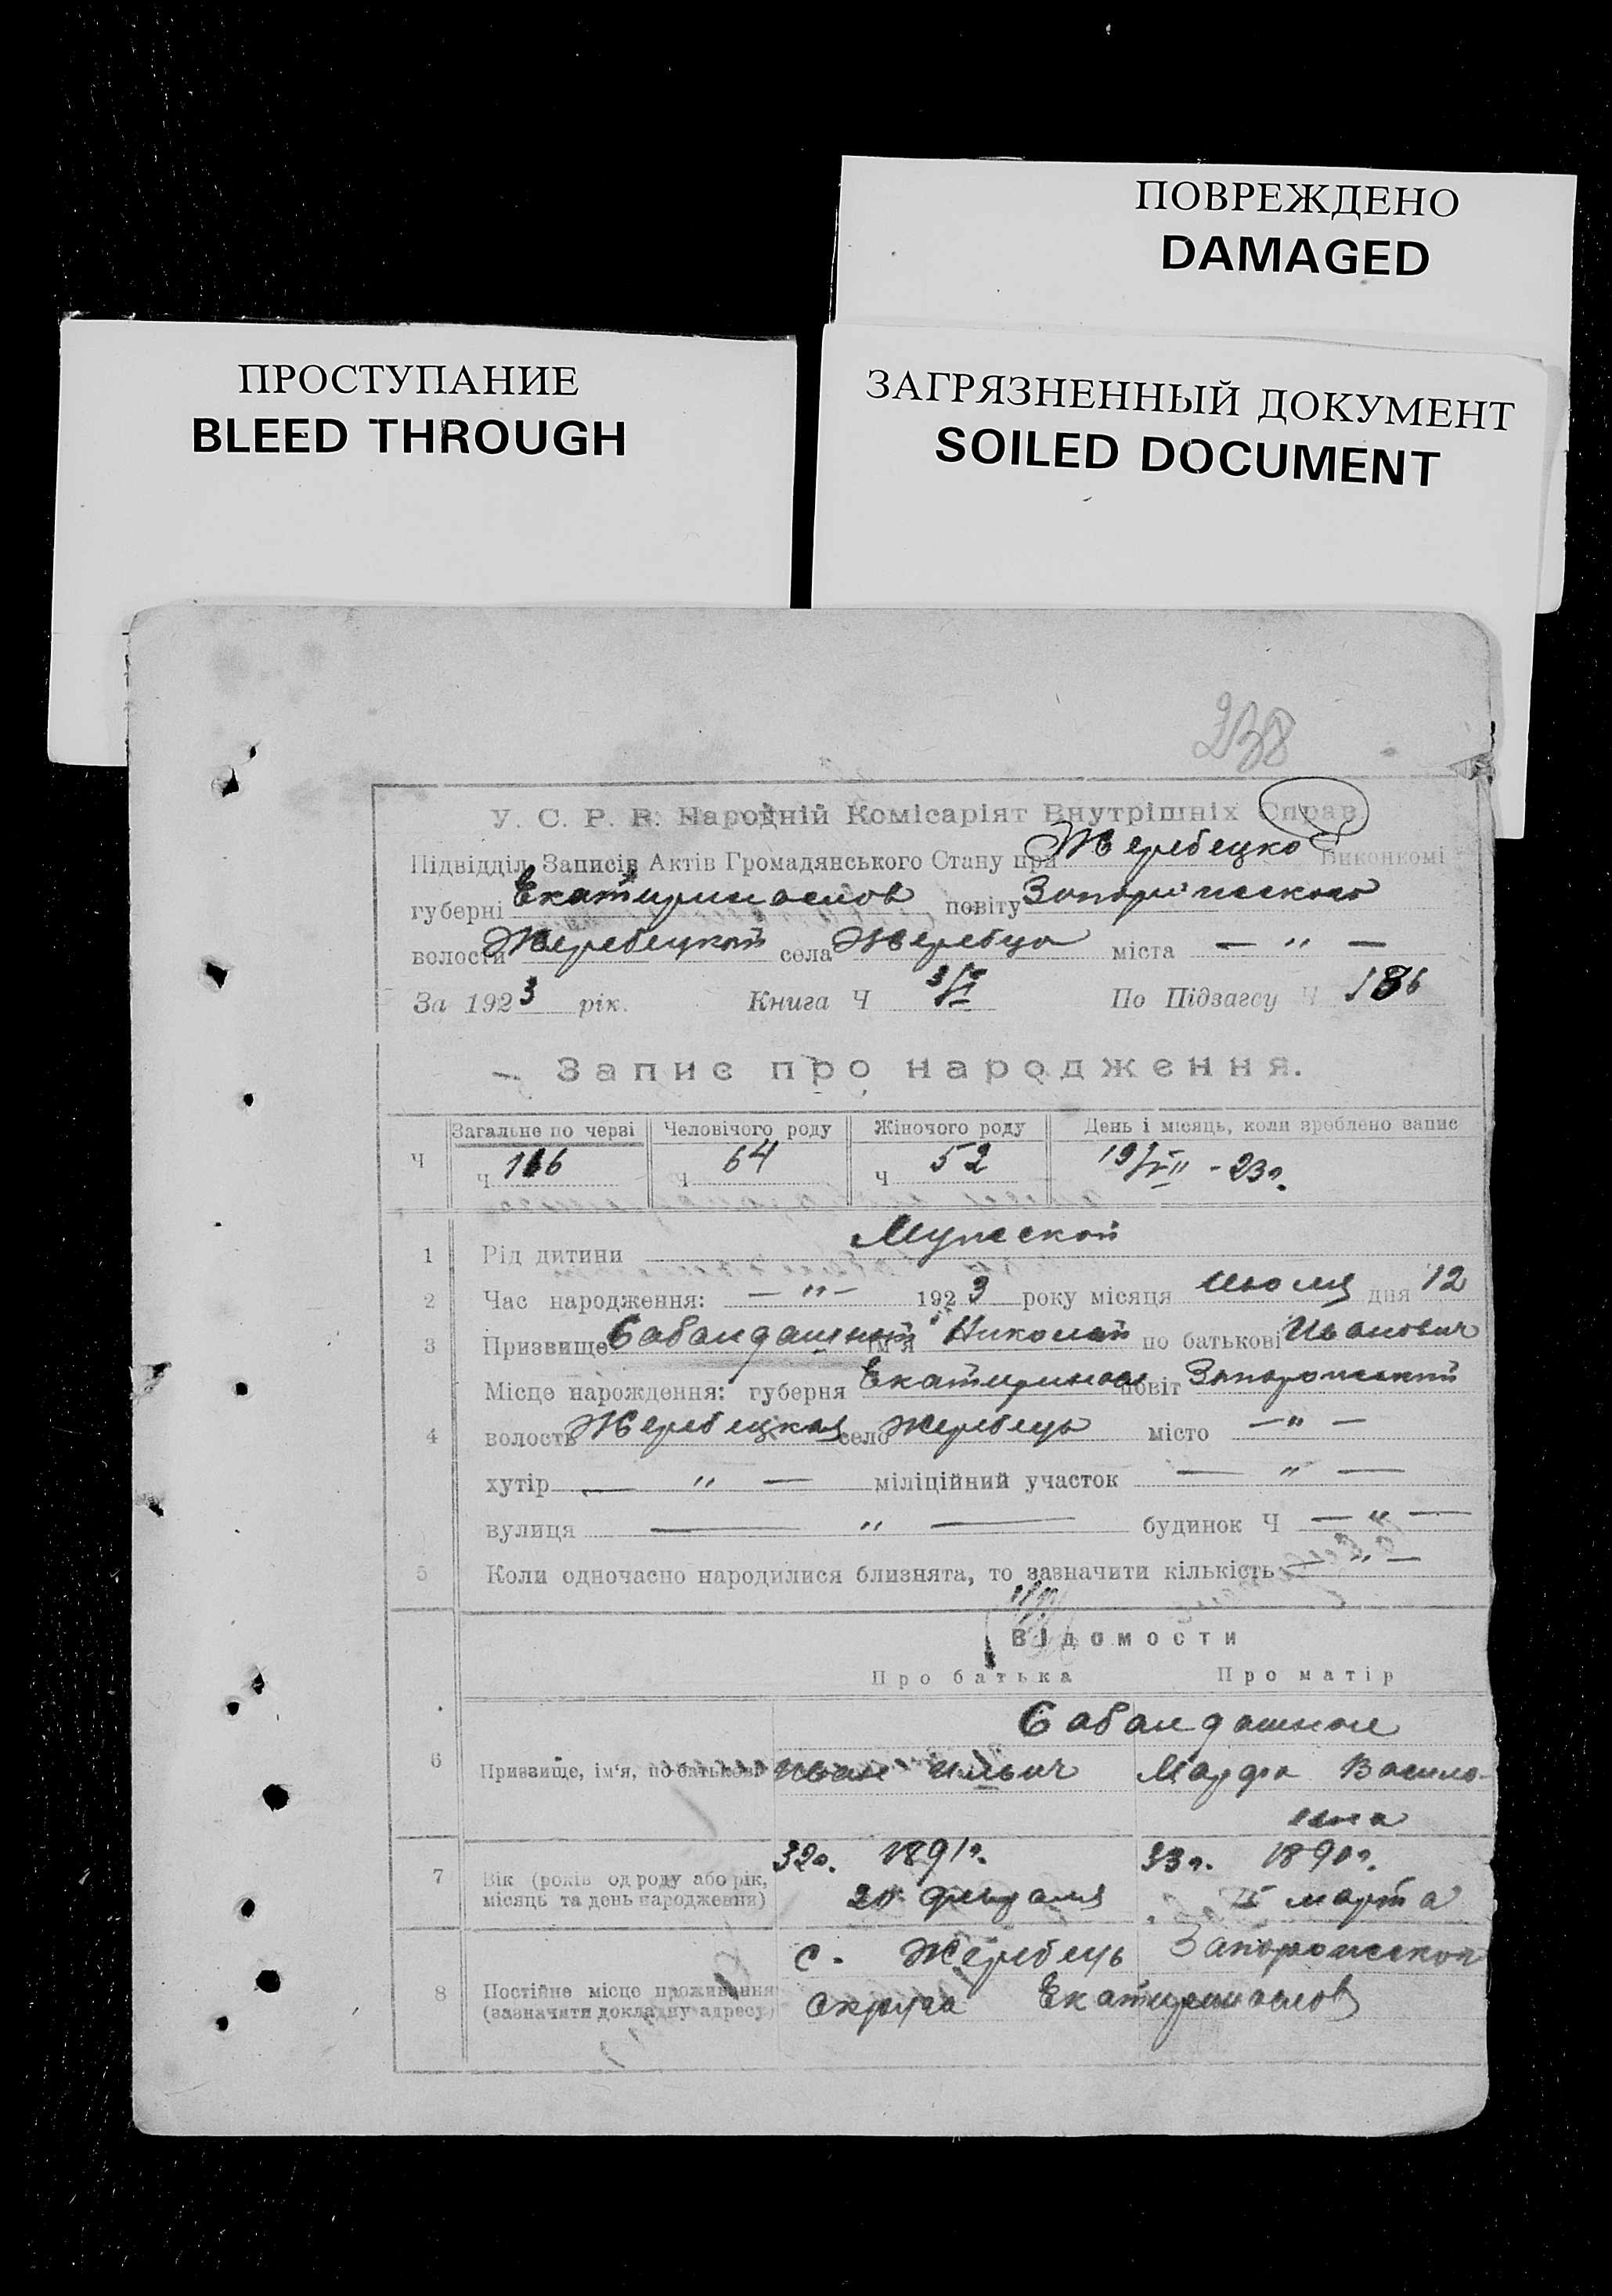 ПОВРЕЖДЕНО
DAMAGED
ПРОСТУПАНИЕ
BLEED THROUGH
ЗАГРЯЗНЕННЫЙ ДОКУМЕНТ
SOILED DOCUMENT
238
У. С. Р. Р. Народній Комісаріят Внутрішніх Справ
Підвідділ Записів Актів Громадянського Стану при Жеребецко Виконкомі
губерні Екатиринослов повіту Запорожского
волости Жеребецкой села Жеребца міста — " —
За 1923 рік. Книга Ч 3/VI По Підзагсу Ч 186
Запис про народження.
Загальне по черзі Человічого роду Жіночого роду День і місяць, коли зроблено запис
Ч Ч 116 Ч 64 Ч 52 19/VII - 23г.
1 Рід дитини Мужской
2 Час народження: — " — 1923 року місяця Июля дня 12
3 Призвище Сабандашный ім'я Николай по батькові Иванович
Місце нарождення: губерня Екатиринос повіт Запорожский
4 волость Жеребецкая село Жеребець місто — " —
хутір — " — міліційний участок — " —
вулиця — " — будинок Ч — " —
5 Коли одночасно народилися близнята, то зазначити кількість — " —
Відомости
Про батька Про матір
Сабандашные
6 Призвище, ім'я, по батькові Иван Ильич Марфа Васило-
7 Вік (років од роду або рік, 32г. 1891г. 33г. 1890г.
місяць та день народження) 20 февраля марта
с. Жеребець Запорожской
8 Постійне місце проживання
(зазначити докладну адресу) округа Екатиринослов